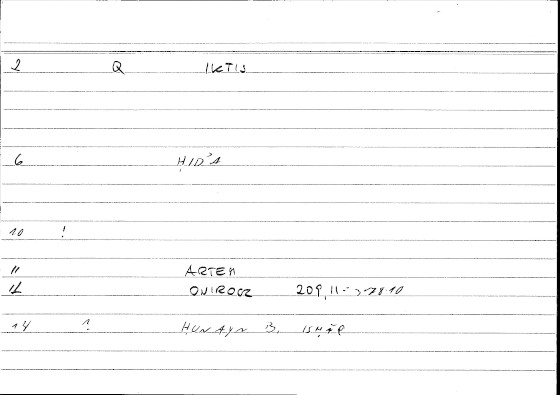 2 Q IKTIS
6 ḤIDʾA
10 !
11 ARTEM
12 ONIROCZ 209,11
14 ? ḤUNAYN B. ISḤĀQ